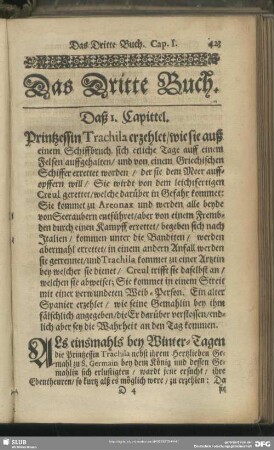 Das Dritte Buch. Cap. I.
Das Dritte Buch.
Daß 1. Capittel.
Printzessin Trachila erzehlet/ wie sie auß
einem Schiffbruch sich etliche Tage auff einem
Felsen auffgehalten/ und von einem Griechischen
Schiffer errettet worden/ der sie dem Meer auff-
opffern will/ Sie wirdt von dem leichtfertigen
Creul gerettet/ welche darüber in Gefahr kommet:
Sie kommet zu Areonax und werden alle beyde
von Seeraubern entführet/ aber von einem Fremb-
den durch einen Kampff errettet/ begeben sich nach
Italien/ kommen unter die Banditen/ werden
abermahl errettet/ in einem andern Anfall werden
sie getrennet/ und Trachila kommet zu einer Artzein
bey welcher sie dienet/ Creul trifft sie daselbst an/
welchen sie abweiset; Sie kommet in einem Streit
mit einer verwundeten Weibs-Person. Ein alter
Spanier erzehlet/ wie seine Gemahlin bey ihm
fälschlich angegeben/ die Er darüber verstossen/ end-
lich aber sey die Wahrheit an den Tag kommen.
ALs einsmahls bey Winter-Tagen
die Printzessin Trachila nebst ihrem Hertzlieben Ge-
mahl zu S. Germain bey dem König und dessen Ge-
mahlin sich erlustigten/ wardt jene ersucht/ ihre
Ebentheuren/ so kurtz alß es möglich were/ zu erzehlen: Da
D 4
SLUB